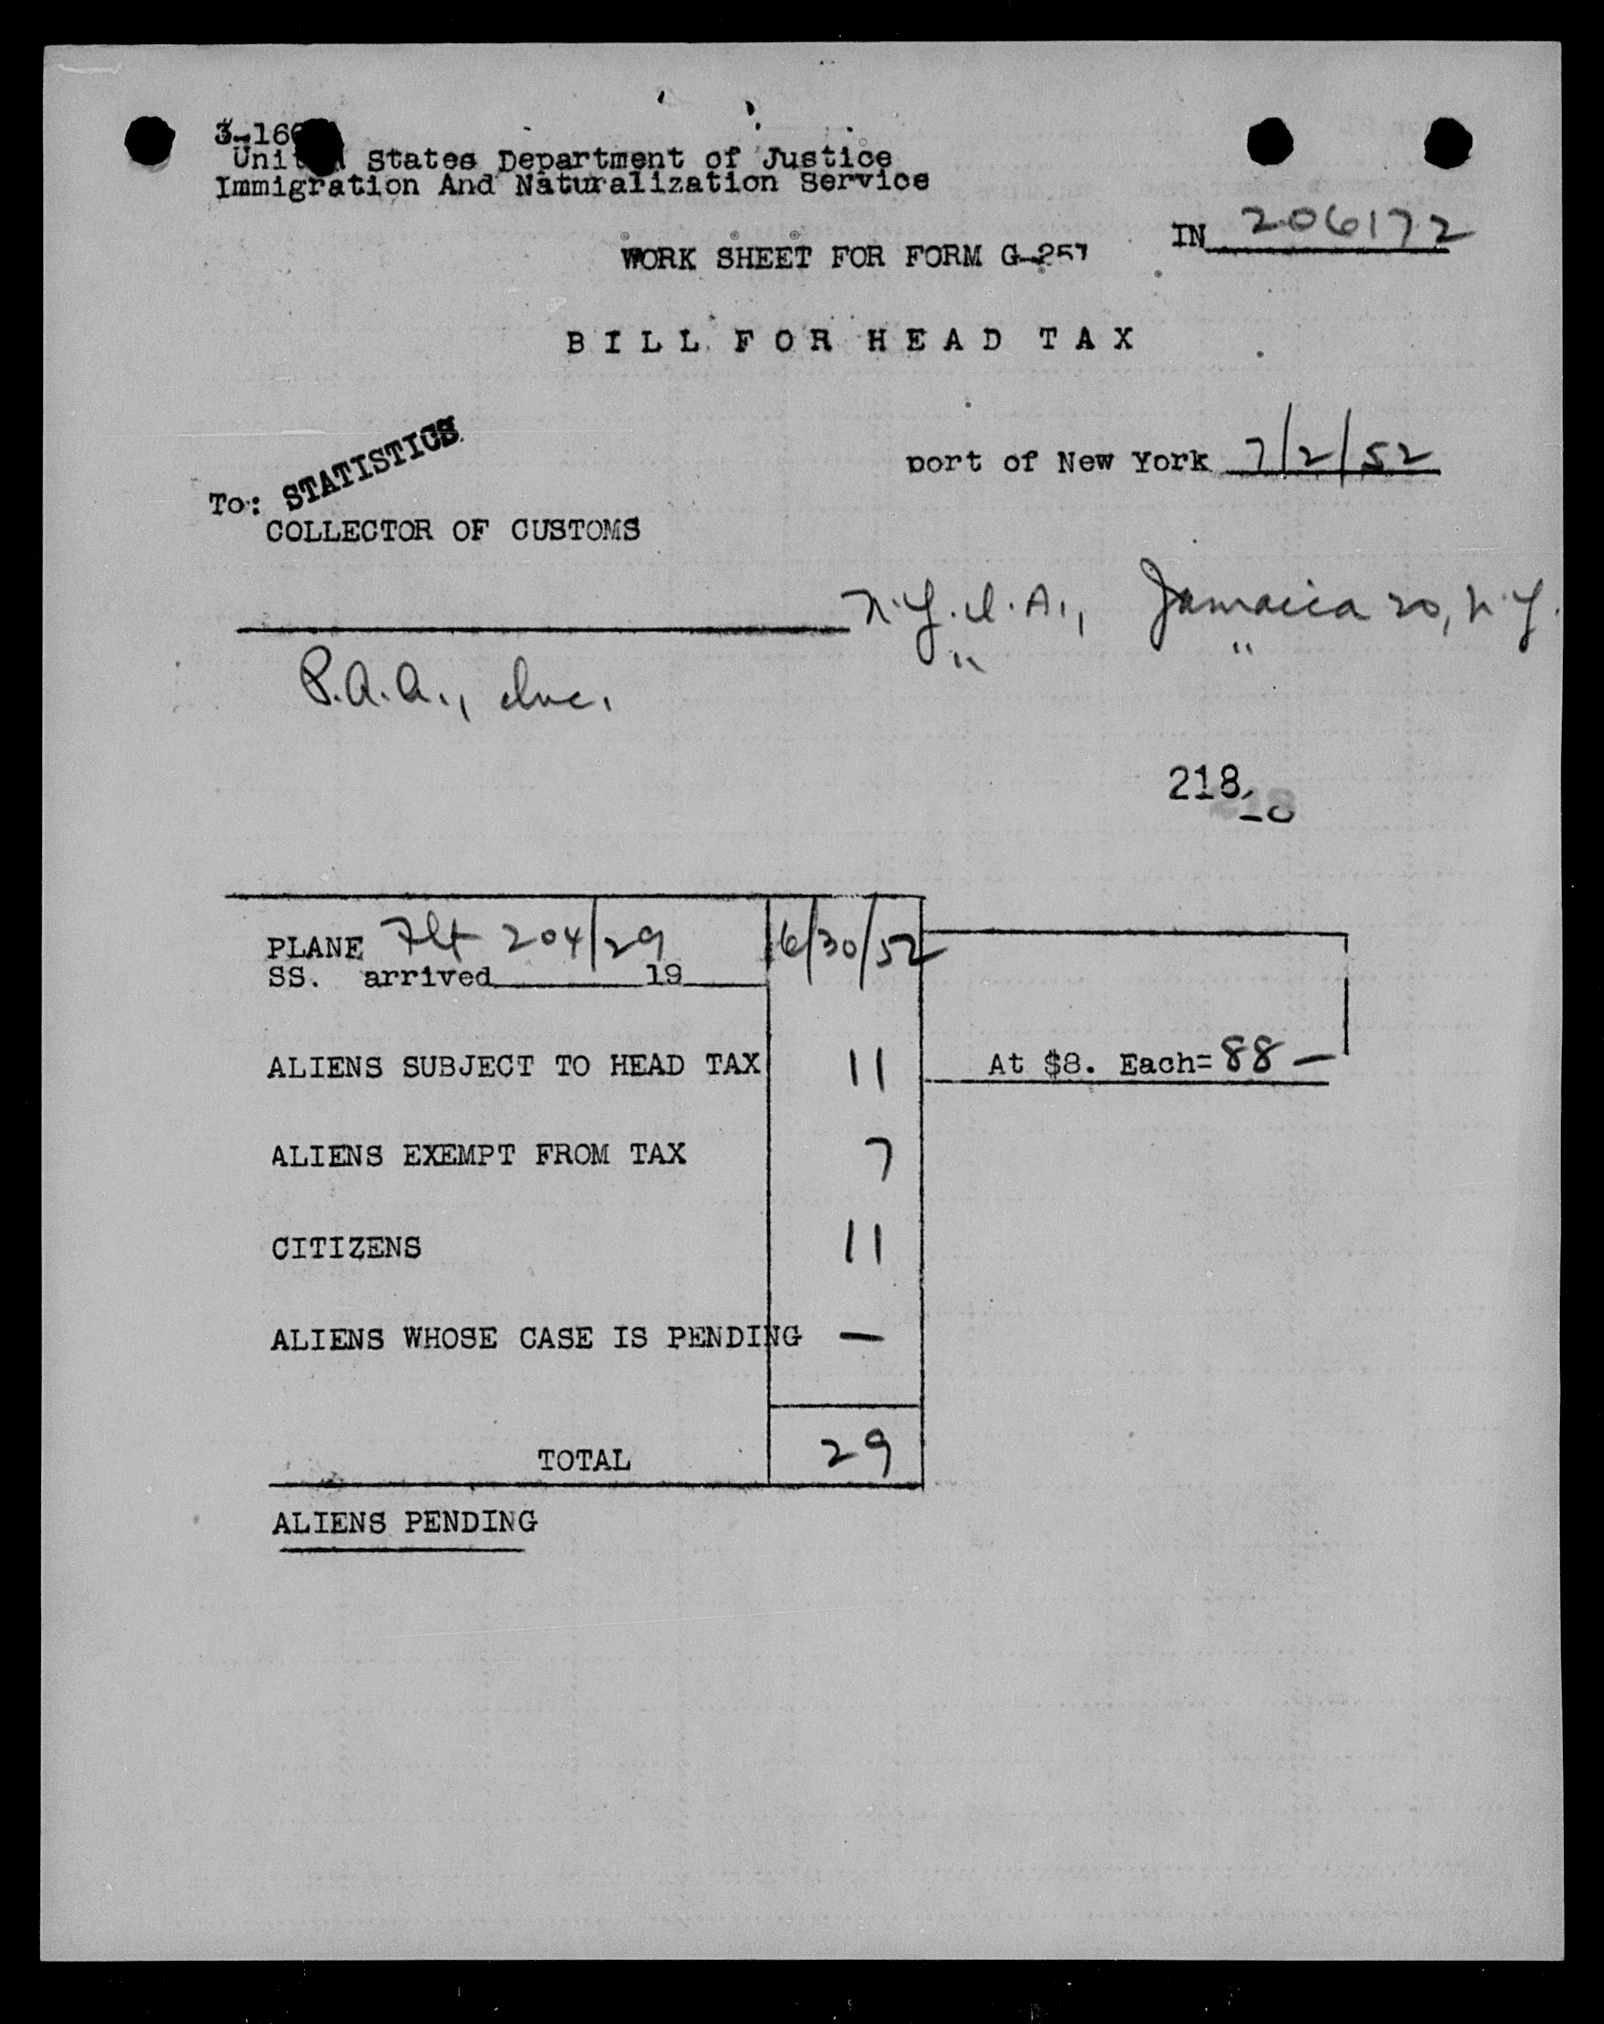 3-16
United States Department of Justice
Immigration And Naturalization Service
IN 206172
WORK SHEET FOR FORM G-257
BILL FOR HEAD TAX
port of New York 7/2/52
To: STATISTICS
COLLECTOR OF CUSTOMS
N.Y.I.A., Jamaica 20, N.Y.
P.A.A., Inc. " "
218
218
PLANE Flt 204/29 6/30/52
SS. arrived 19
ALIENS SUBJECT TO HEAD TAX 11 At $8. Each= 88 —
ALIENS EXEMPT FROM TAX 7
CITIZENS 11
ALIENS WHOSE CASE IS PENDING —
TOTAL 29
ALIENS PENDING